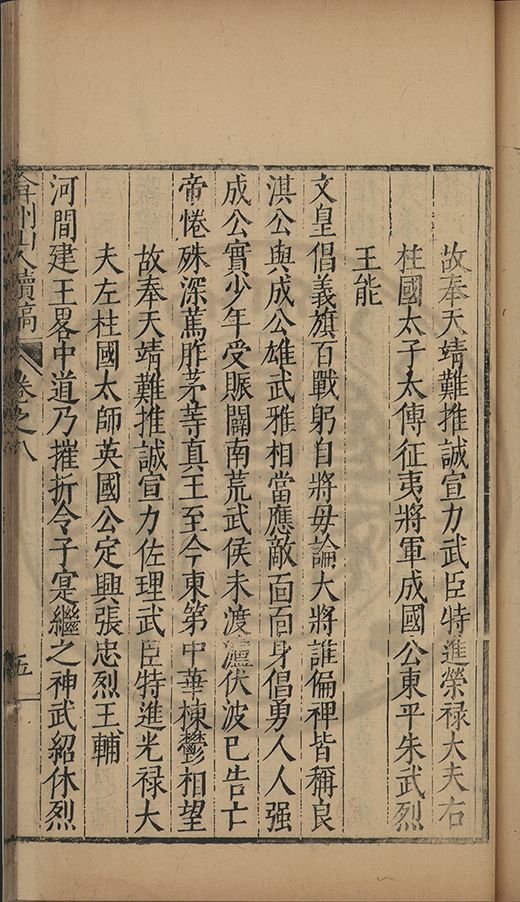 故奉天靖難推誠宣力武臣特進榮禄大夫右
柱國太子太傅征夷將軍成國公東平朱武烈
王能
文皇倡義旗百戰躬自將毋論大將誰偏裨皆稱良
淇公與成公雄武雅相當應敵面百身倡勇人人强
成公實少年受賑闢南荒武侯未渡瀘伏波已告亡
帝惓殊深蔫胙茅等真王至今東第中華棟鬱相望
故奉天靖難推誠宣力佐理武臣特進光禄大
夫左柱國太師英國公定興張忠烈王輔
河間建王畧中道乃摧折令子寔繼之神武紹休烈
弇州山人續稿 卷之八 五